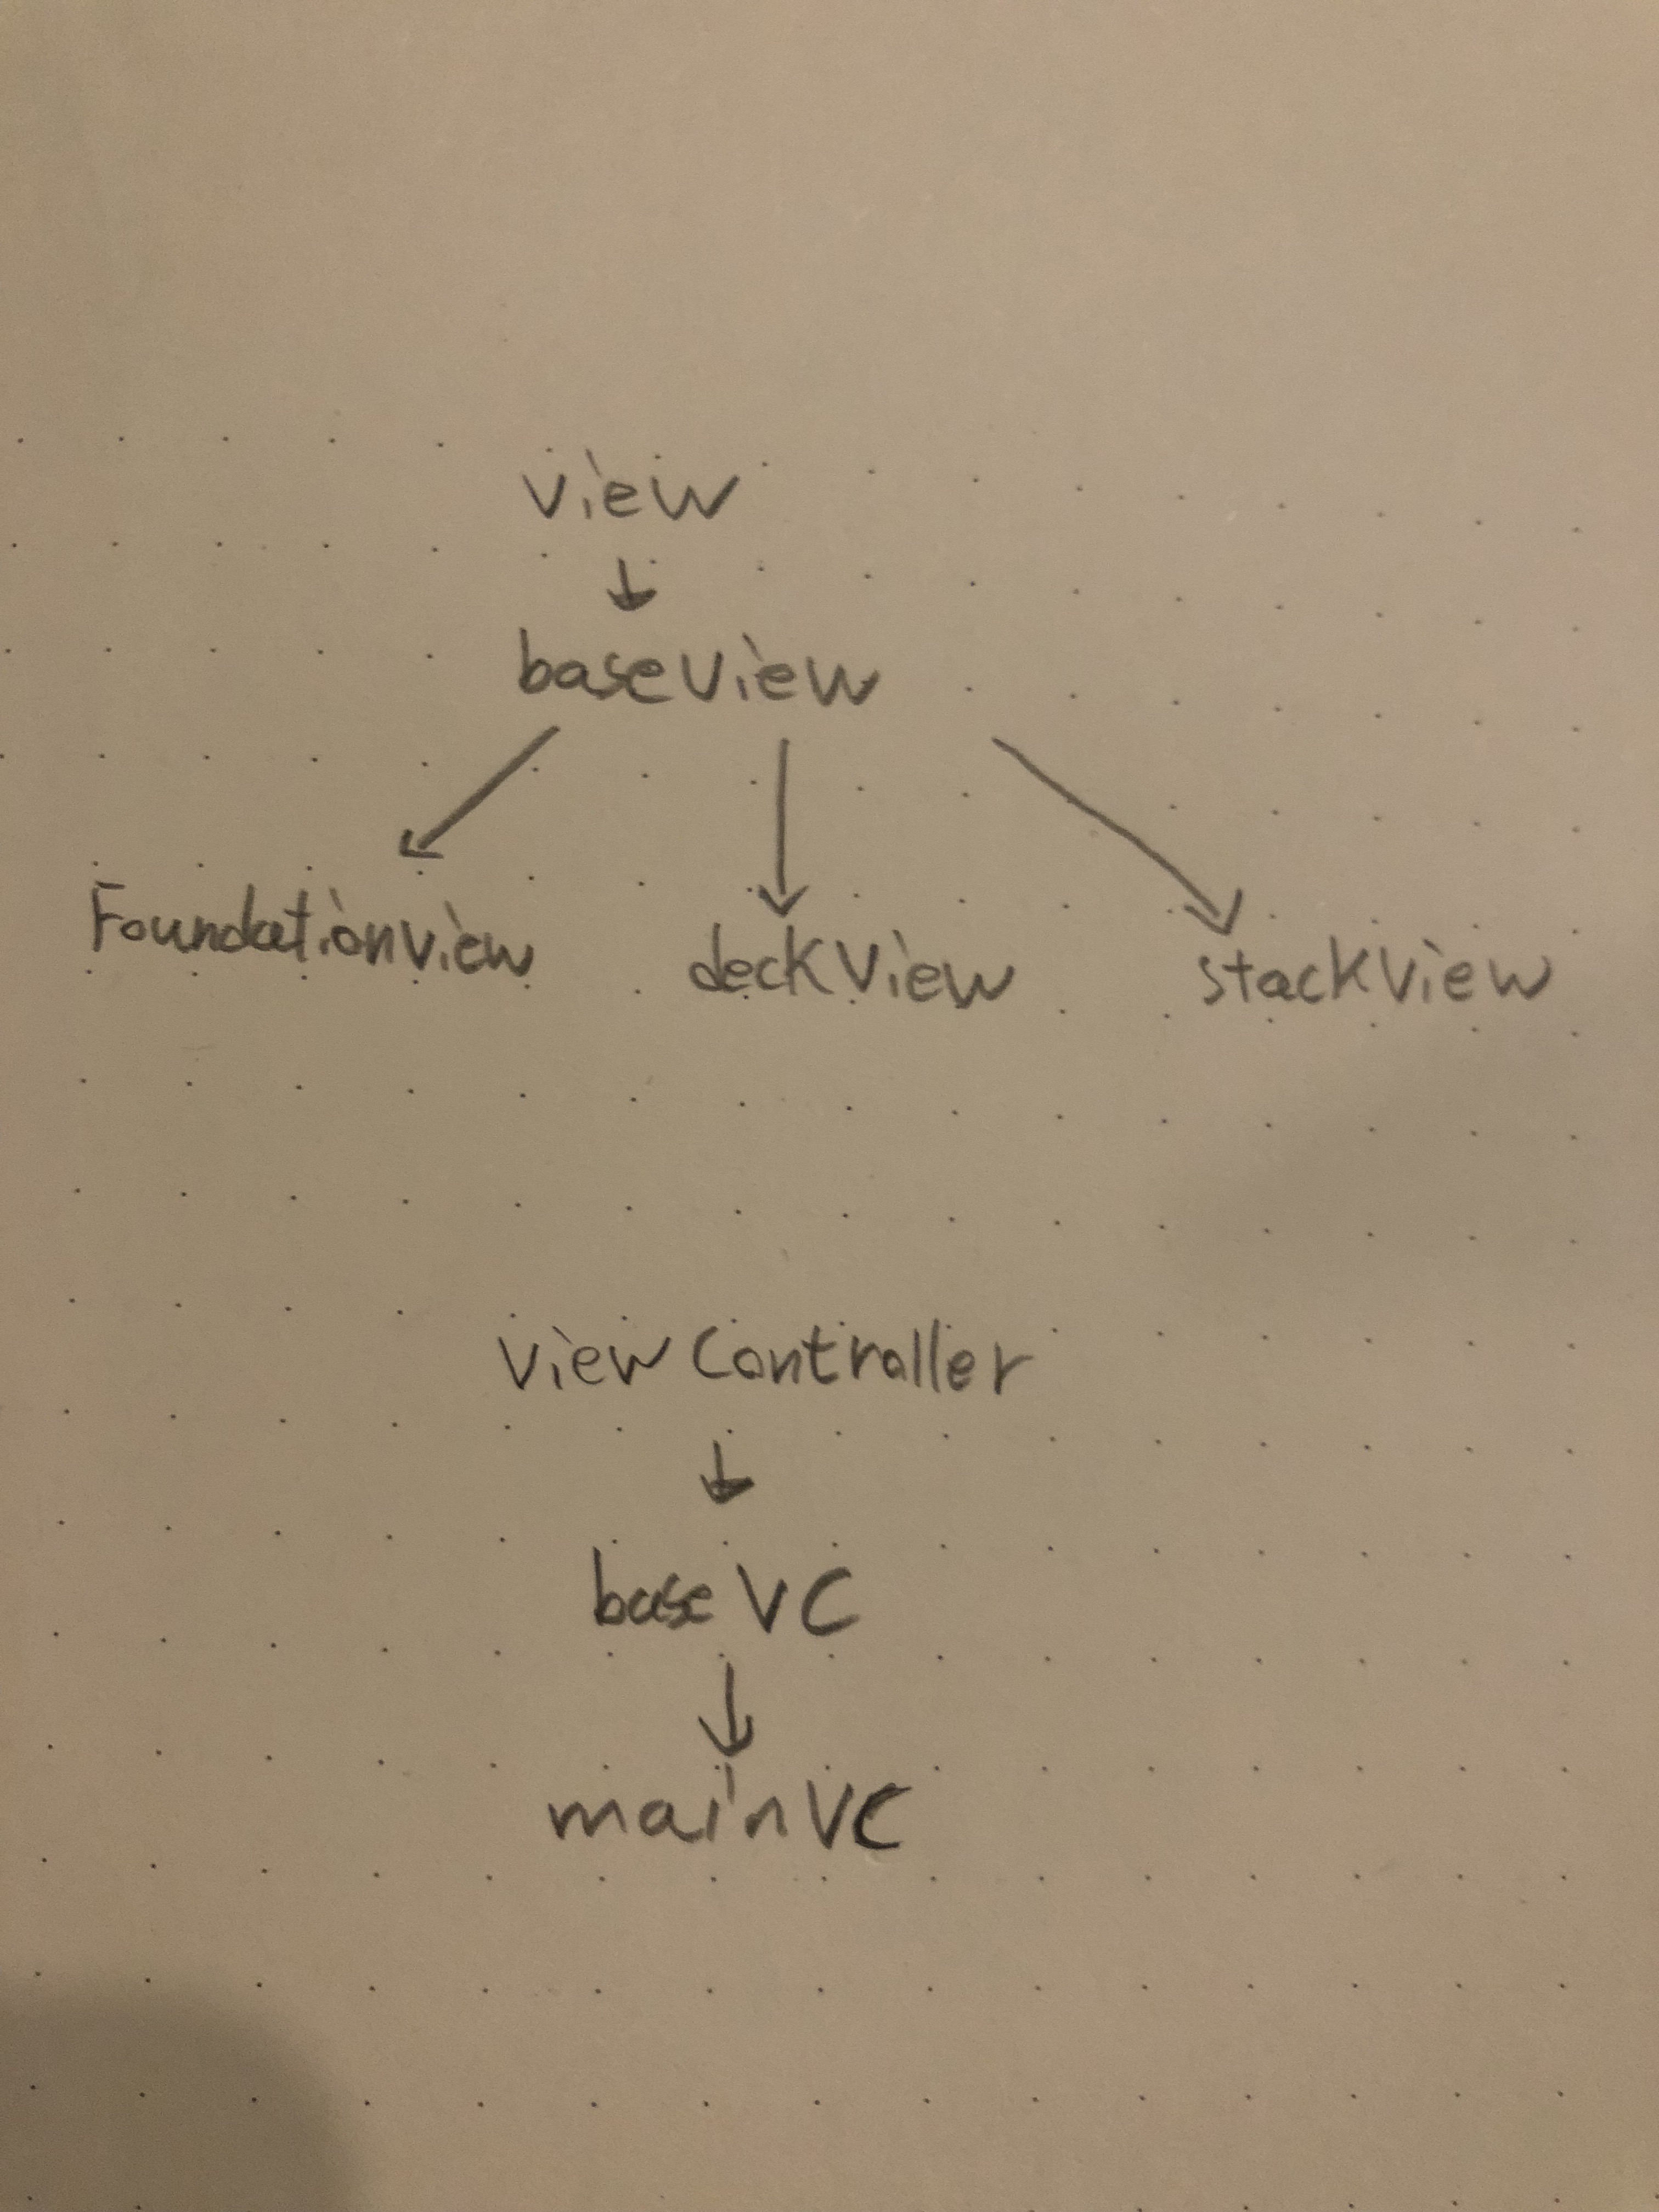 view
baseView
FoundationView
deckView
stackView
view Controller
base VC
mainVC